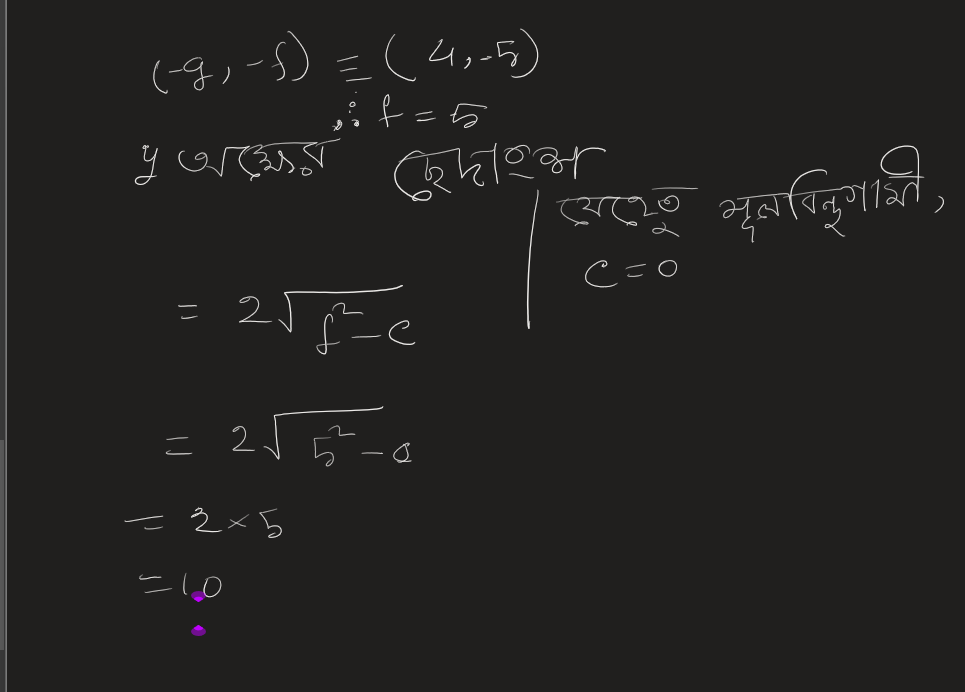 (-g, -f) ≡ (4, -5)
∴ f = 5
y অক্ষের ছেদাংশ
যেহেতু মূলবিন্দুগামী,
c = 0
= 2√(f² - c)
= 2√(5² - 0)
= 2 × 5
= 10